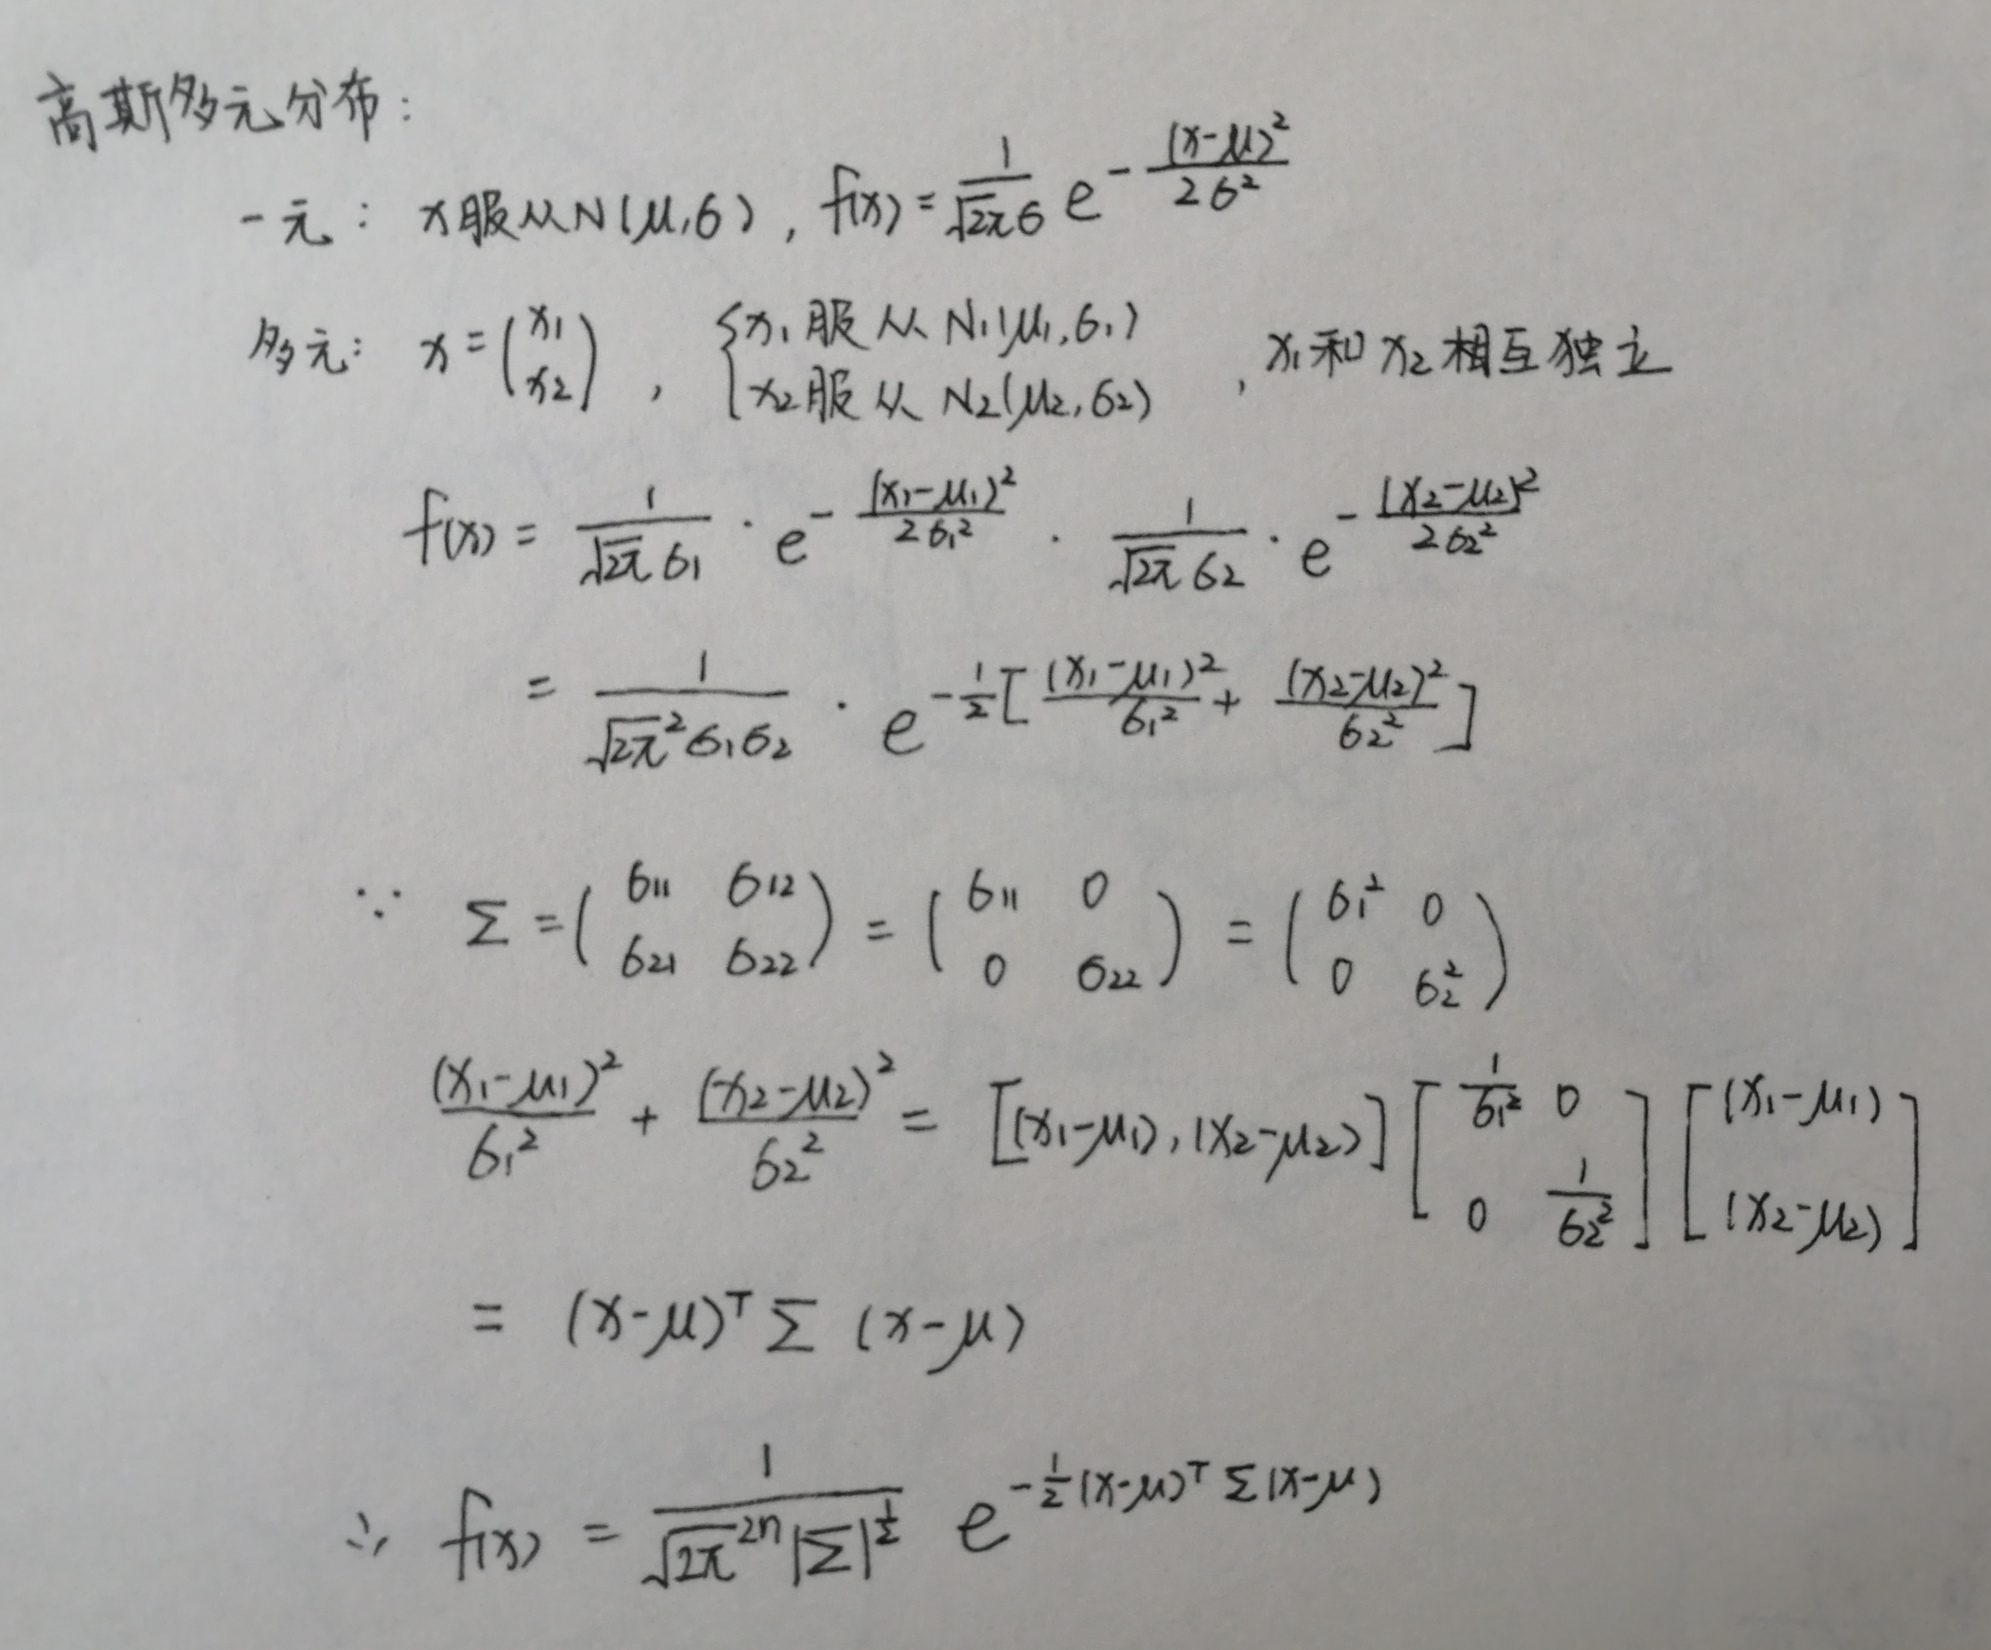 高斯多元分布：
一元： x服从N(μ,σ), f(x) = \frac{1}{\sqrt{2π}σ} e^{-\frac{(x-μ)^2}{2σ^2}}
多元： x = \begin{pmatrix} x_1 \\ x_2 \end{pmatrix} , \begin{cases} x_1 服从 N_1(μ_1,σ_1) \\ x_2 服从 N_2(μ_2,σ_2) \end{cases} , x_1和x_2相互独立
f(x) = \frac{1}{\sqrt{2π}σ_1} · e^{-\frac{(x_1-μ_1)^2}{2σ_1^2}} · \frac{1}{\sqrt{2π}σ_2} · e^{-\frac{(x_2-μ_2)^2}{2σ_2^2}}
= \frac{1}{\sqrt{2π}^2 σ_1σ_2} · e^{-\frac{1}{2}[\frac{(x_1-μ_1)^2}{σ_1^2} + \frac{(x_2-μ_2)^2}{σ_2^2}]}
∵ Σ = \begin{pmatrix} σ_{11} & σ_{12} \\ σ_{21} & σ_{22} \end{pmatrix} = \begin{pmatrix} σ_{11} & 0 \\ 0 & σ_{22} \end{pmatrix} = \begin{pmatrix} σ_1^2 & 0 \\ 0 & σ_2^2 \end{pmatrix}
\frac{(x_1-μ_1)^2}{σ_1^2} + \frac{(x_2-μ_2)^2}{σ_2^2} = [(x_1-μ_1), (x_2-μ_2)] \begin{bmatrix} \frac{1}{σ_1^2} & 0 \\ 0 & \frac{1}{σ_2^2} \end{bmatrix} \begin{bmatrix} (x_1-μ_1) \\ (x_2-μ_2) \end{bmatrix}
= (x-μ)^T Σ (x-μ)
∴ f(x) = \frac{1}{\sqrt{2π}^{2n} |Σ|^{\frac{1}{2}}} e^{-\frac{1}{2}(x-μ)^T Σ(x-μ)}